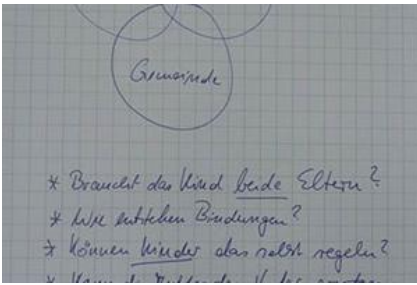 Gemeinde
* Braucht das Kind beide Eltern?
* Wie entstehen Bindungen?
* Können Kinder das selbst regeln?
* Kann